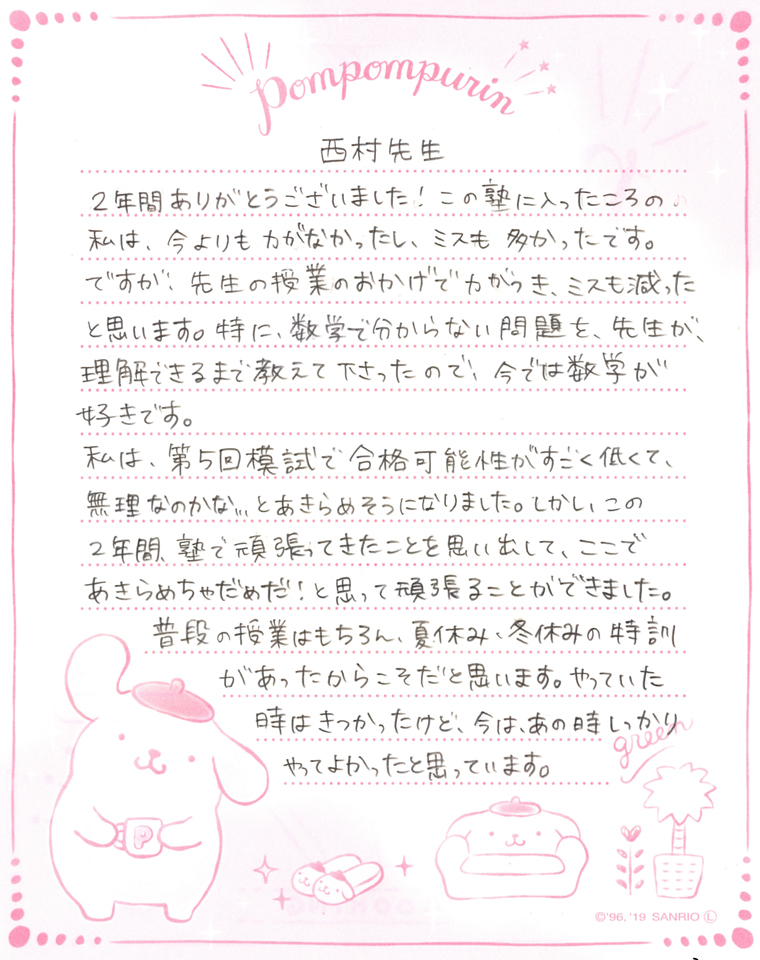 Pompompurin
西村先生
2年間ありがとうございました！この塾に入ったころの
私は、今よりも力がなかったし、ミスも多かったです。
ですが、先生の授業のおかげで力がつき、ミスも減った
と思います。特に、数学で分からない問題を、先生が、
理解できるまで教えて下さったので、今では数学が
好きです。
私は、第5回模試で合格可能性がすごく低くて、
無理なのかな...とあきらめそうになりました。しかし、この
2年間、塾で頑張ってきたことを思い出して、ここで
あきらめちゃだめだ！と思って頑張ることができました。
普段の授業はもちろん、夏休み、冬休みの特訓
があったからこそだと思います。やっていた
時はきつかったけど、今は、あの時しっかり
やってよかったと思っています。
green
P
©'96, '19 SANRIO Ⓛ